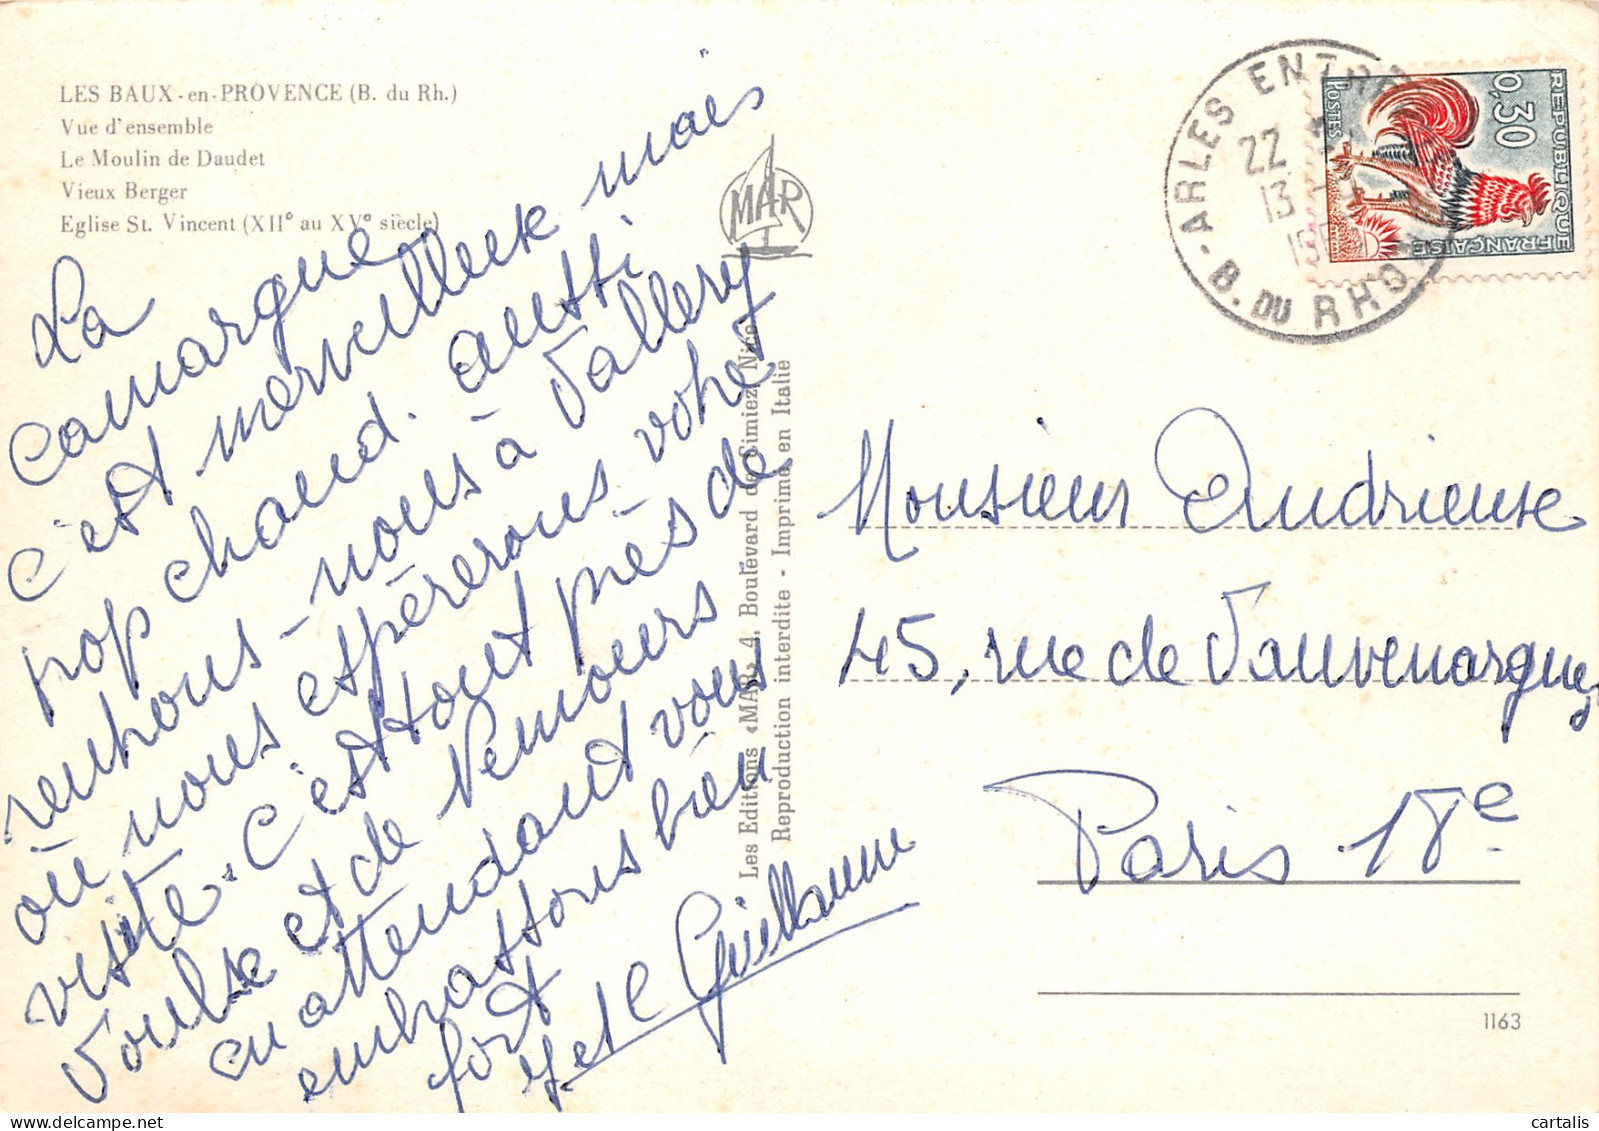 LES BAUX-en-PROVENCE (B. du Rh.)
Vue d'ensemble
Le Moulin de Daudet
Vieux Berger
Eglise St. Vincent (XII° au XV° siècle)
La
Camargue
c'est merveilleux mais
trop chaud. aussi
rentrons-nous à Vallery
où nous espérerons votre
visite. C'est tout près de
Voulx et de Nemours
en attendant vous
embrassons bien
fort
Y et C Guillaume
MAR
Les Editions «MAR» 4, Boulevard de Cimiez, Nice
Reproduction interdite - Imprimé en Italie
ARLES
B. DU RHO
22
13
REPUBLIQUE FRANÇAISE
0,30
POSTES
Monsieur Andrieuse
45, rue de Vauvenargues
Paris 18e
1163
cartalis